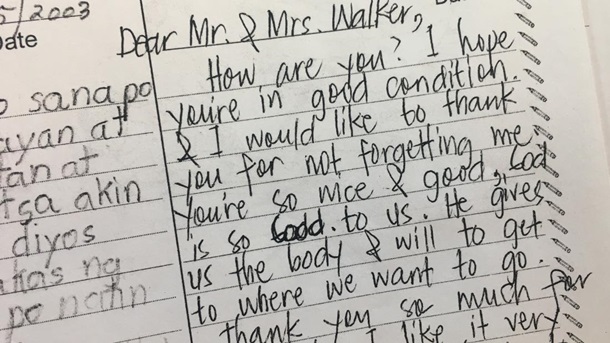 5/2003
Date
sana po
ayan at
tan at
tsa akin
diyos
ng
po natin
Dear Mr. & Mrs. Walker,
How are you? I hope
you're in godd condition.
& I would like to thank
you for not forgetting me.
You're so nice & good, God
is so Godd. to us. He gives
us the body & will to get
to where we want to go.
thank you so much for
I like it very